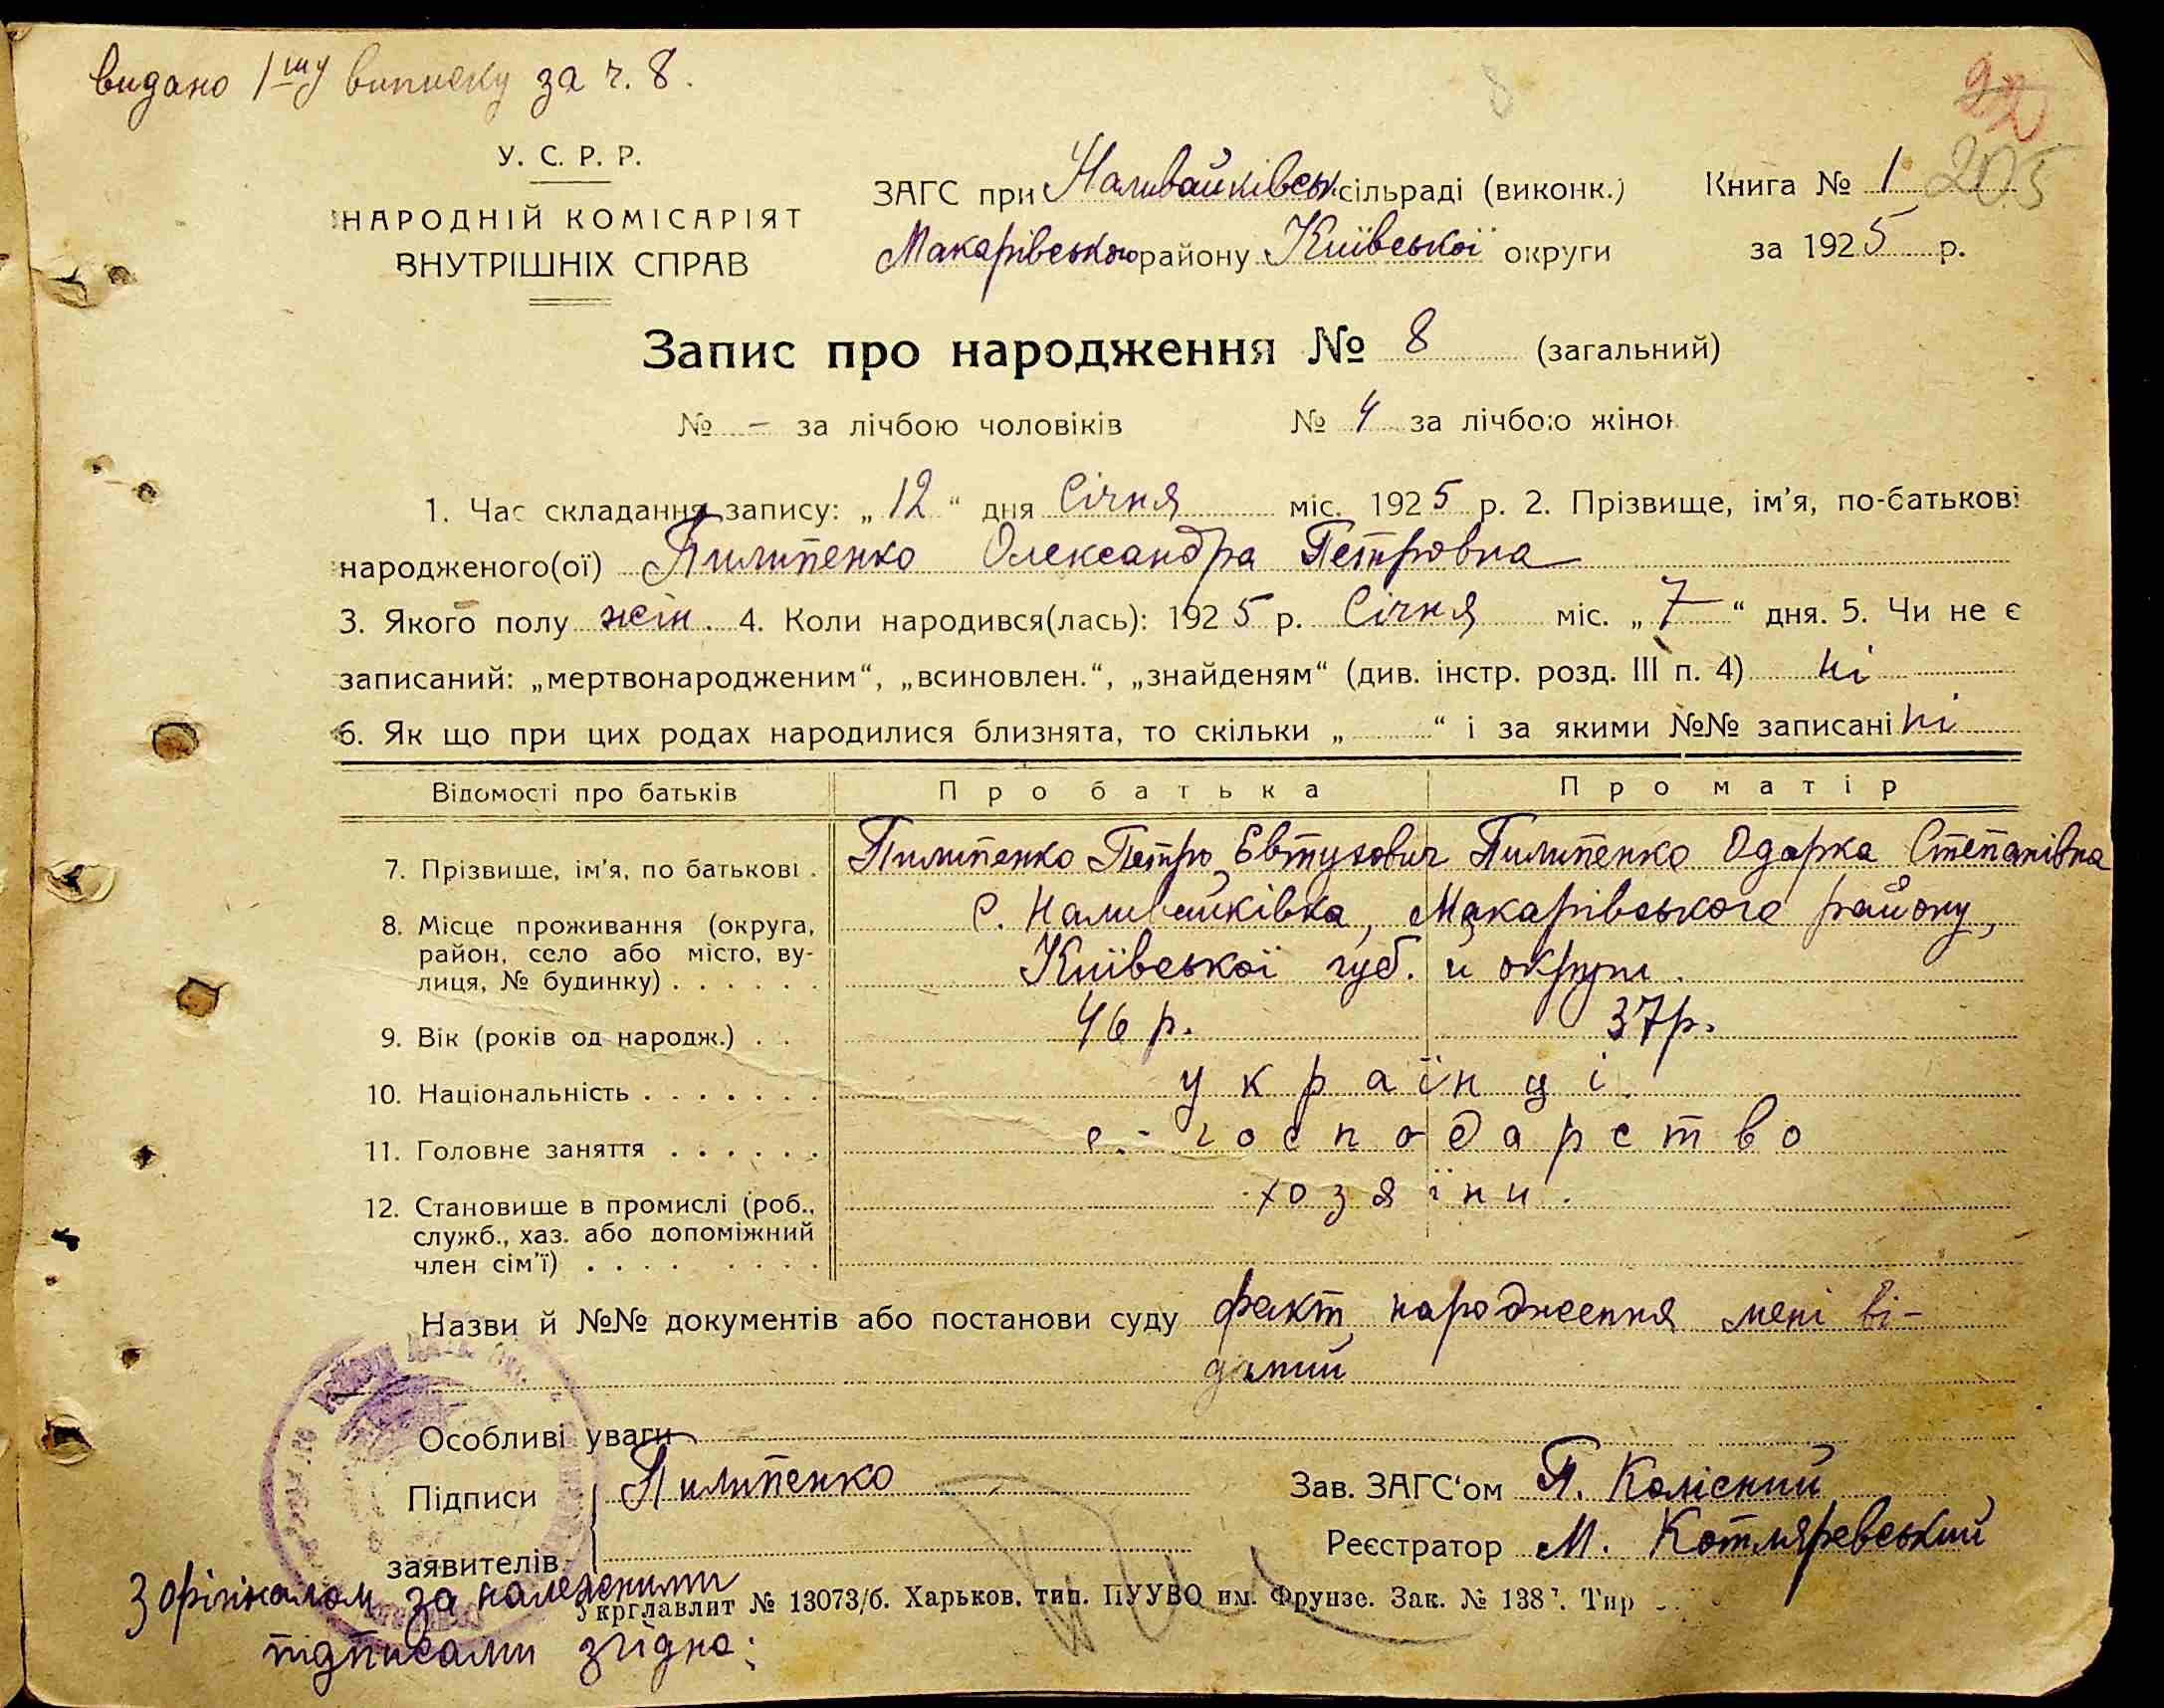 видано 1шу виписку за ч. 8.
22
205
У. С. Р. Р.
НАРОДНІЙ КОМІСАРІЯТ
ВНУТРІШНІХ СПРАВ
ЗАГС при Наливайківськ. сільраді (виконк.)
Макарівського району Київської округи
Книга № 1
за 1925 р.
Запис про народження № 8 (загальний)
№ - за лічбою чоловіків № 4 за лічбою жінок
1. Час складання запису: „12“ дня Січня міс. 1925 р. 2. Прізвище, ім'я, по-батькові
народженого(ої) Пилипенко Олександра Петровна
3. Якого полу жін. 4. Коли народився(лась): 1925 р. Січня міс. „7“ дня. 5. Чи не є
записаний: „мертвонародженим“, „всиновлен.“, „знайденям“ (див. інстр. розд. III п. 4) ні
6. Як що при цих родах народилися близнята, то скільки „ “ і за якими №№ записані ні
Відомості про батьків Про батька Про матір
7. Прізвище, ім'я, по батькові . Пилипенко Петро Євтухович Пилипенко Одарка Степанівна
8. Місце проживання (округа, район, село або місто, вулиця, № будинку) . . . . . . с. Наливайківка, Макарівського району,
Київської губ. и округи.
9. Вік (років од народж.) . . 46 р. 37 р.
10. Національність . . . . . . . українці.
11. Головне заняття . . . . . . с.-господарство
12. Становище в промислі (роб., служб., хаз. або допоміжний член сім'ї) . . . . хозяїни.
Назви й №№ документів або постанови суду факт народження мені ві-
домий
Особливі уваги
Підписи заявителів Пилипенко
Зав. ЗАГС'ом П. Колісний
Реєстратор М. Котляревський
Укрглавлит № 13073/б. Харьков, тип. ПУУВО им. Фрунзе. Зак. № 138 . Тир
З орігіналом за належними
підписами згідно: